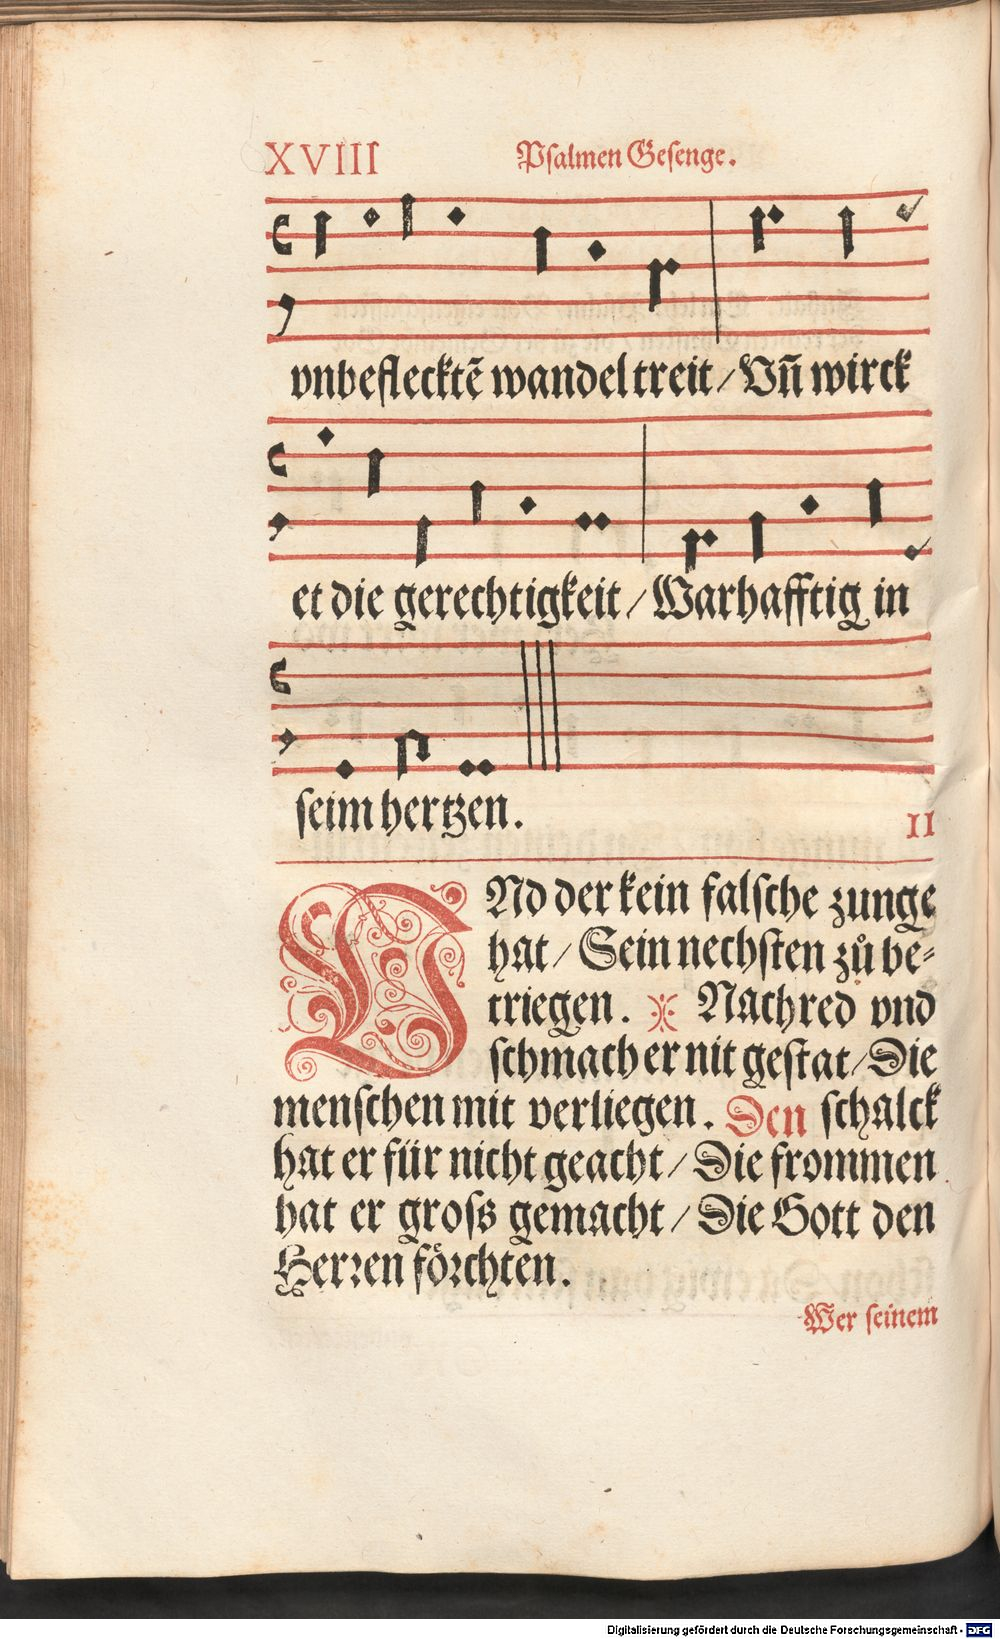 XVIII Psalmen Gesenge.
vnbeflecktẽ wandel treit / Vñ wirck
et die gerechtigkeit / Warhafftig in
seim hertzen.
II
VNd der kein falsche zunge
hat / Sein nechsten zů be-
triegen. Nachred vnd
schmach er nit gestat / Die
menschen mit verliegen. Den schalck
hat er für nicht geacht / Die frommen
hat er gross gemacht / Die Gott den
Herren förchten.
Wer seinem
Digitalisierung gefördert durch die Deutsche Forschungsgemeinschaft - DFG